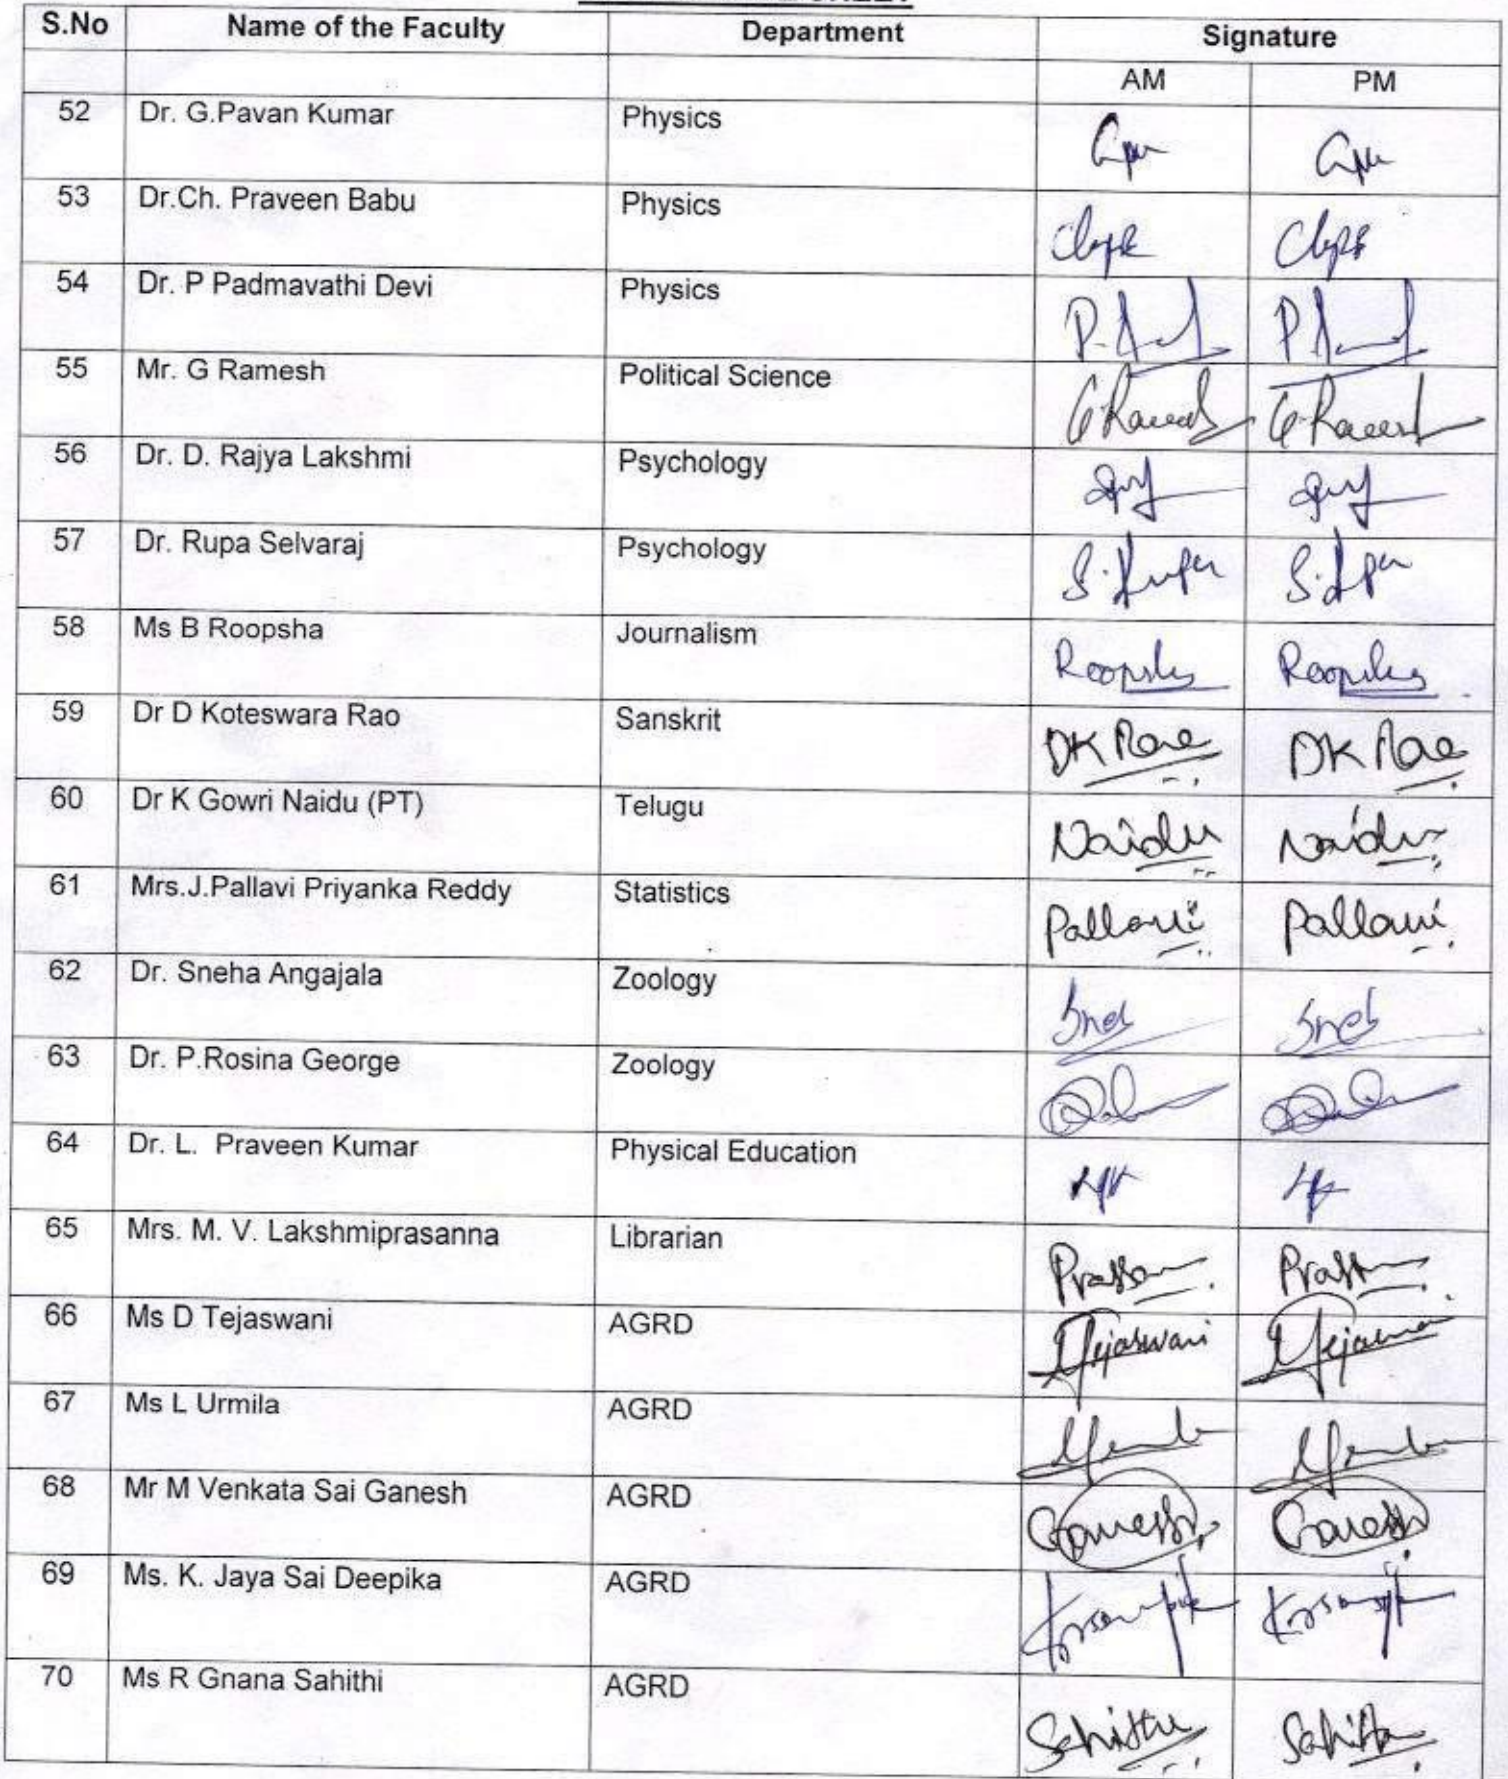 S.No Name of the Faculty Department Signature
AM PM
52 Dr. G.Pavan Kumar Physics
53 Dr.Ch. Praveen Babu Physics
54 Dr. P Padmavathi Devi Physics
55 Mr. G Ramesh Political Science
56 Dr. D. Rajya Lakshmi Psychology
57 Dr. Rupa Selvaraj Psychology
58 Ms B Roopsha Journalism
59 Dr D Koteswara Rao Sanskrit DK Rao DK Rao
60 Dr K Gowri Naidu (PT) Telugu Naidu Naidu
61 Mrs.J.Pallavi Priyanka Reddy Statistics Pallavi Pallavi
62 Dr. Sneha Angajala Zoology
63 Dr. P.Rosina George Zoology
64 Dr. L. Praveen Kumar Physical Education
65 Mrs. M. V. Lakshmiprasanna Librarian
66 Ms D Tejaswani AGRD Tejaswani
67 Ms L Urmila AGRD
68 Mr M Venkata Sai Ganesh AGRD Ganesh Ganesh
69 Ms. K. Jaya Sai Deepika AGRD
70 Ms R Gnana Sahithi AGRD